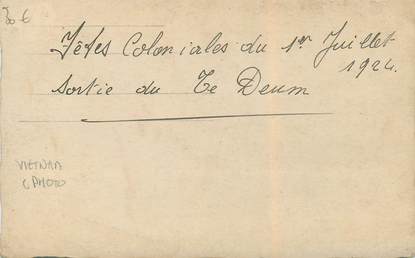 30 €
Fêtes Coloniales du 1er Juillet
1924.
Sortie du Te Deum
VIETNAM
CPHOTO